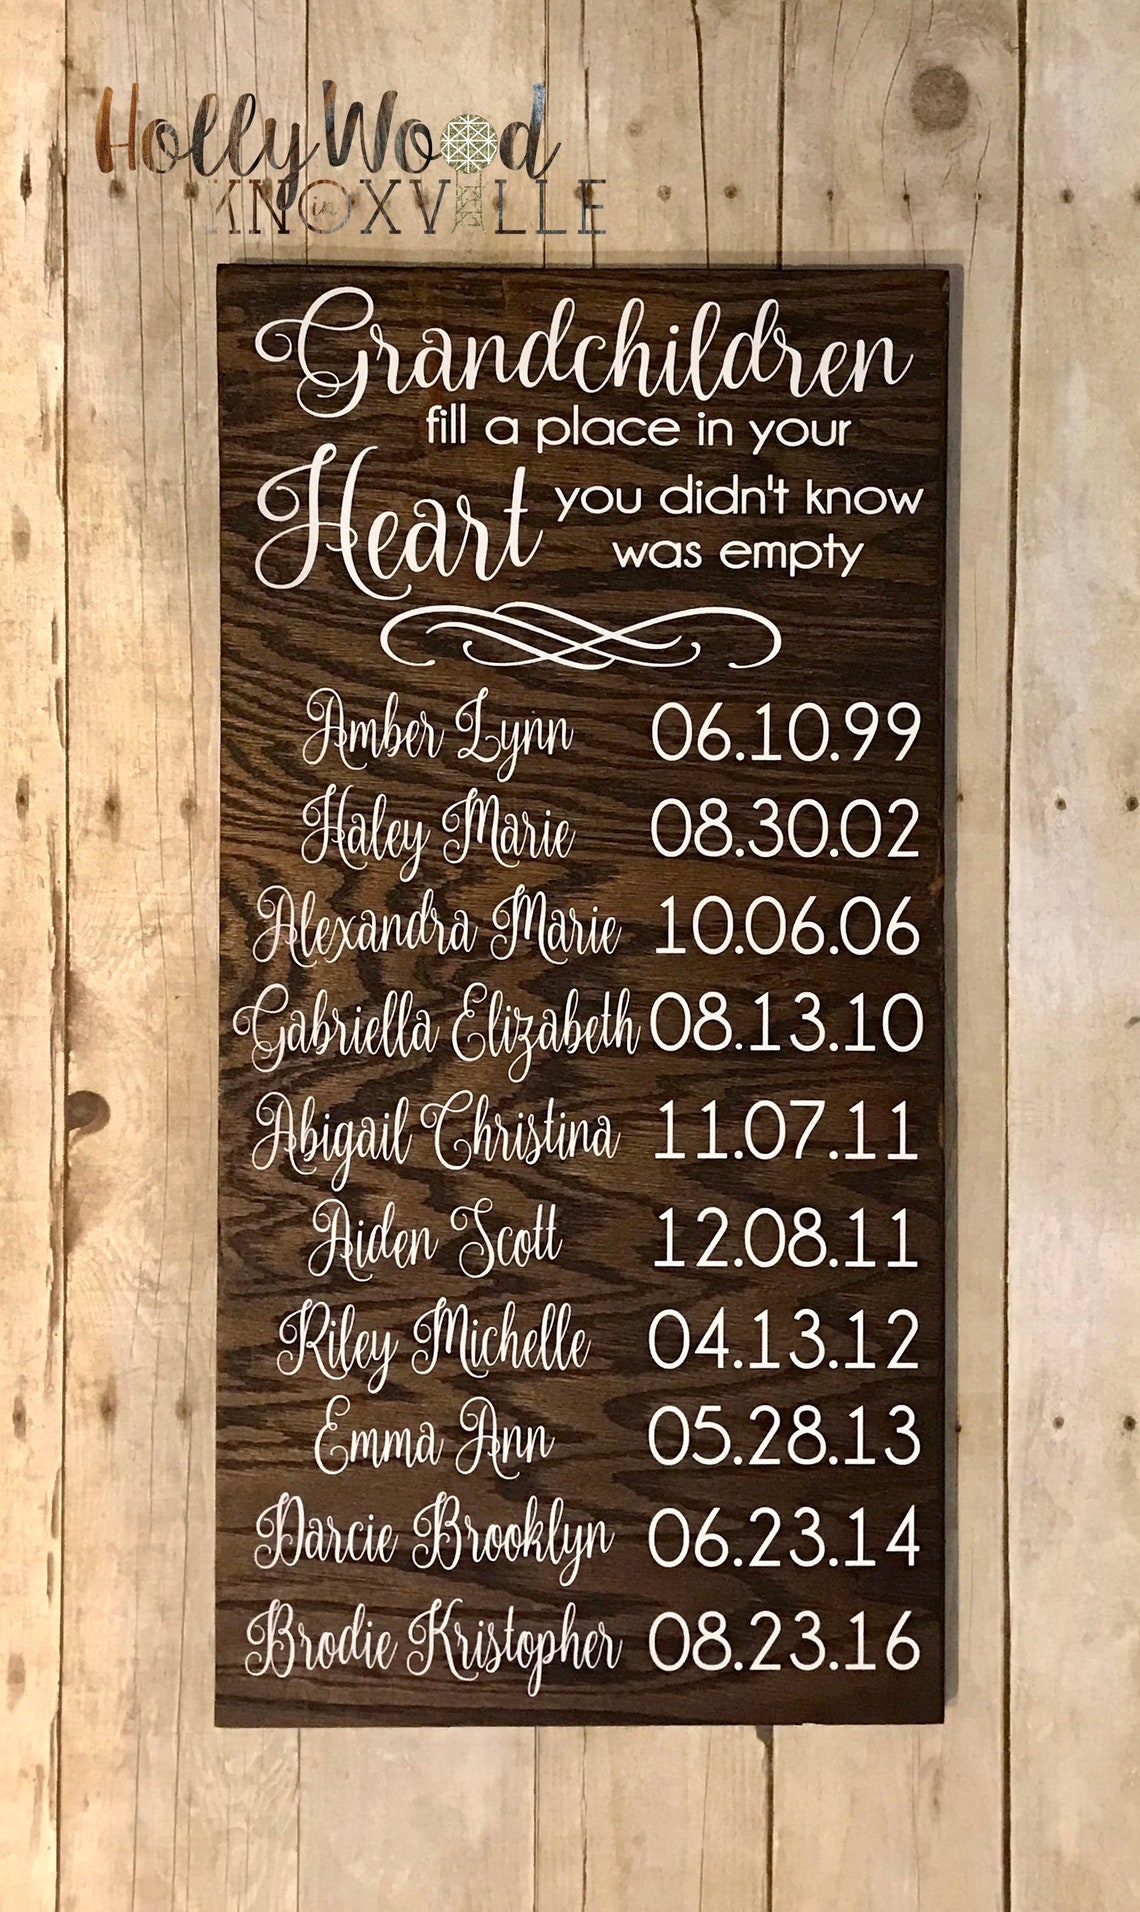 HollyWood
in
KNOXVILLE
Grandchildren
fill a place in your
Heart you didn't know
was empty
Amber Lynn 06.10.99
Haley Marie 08.30.02
Alexandra Marie 10.06.06
Gabriella Elizabeth 08.13.10
Abigail Christina 11.07.11
Aiden Scott 12.08.11
Riley Michelle 04.13.12
Emma Ann 05.28.13
Darcie Brooklyn 06.23.14
Brodie Kristopher 08.23.16